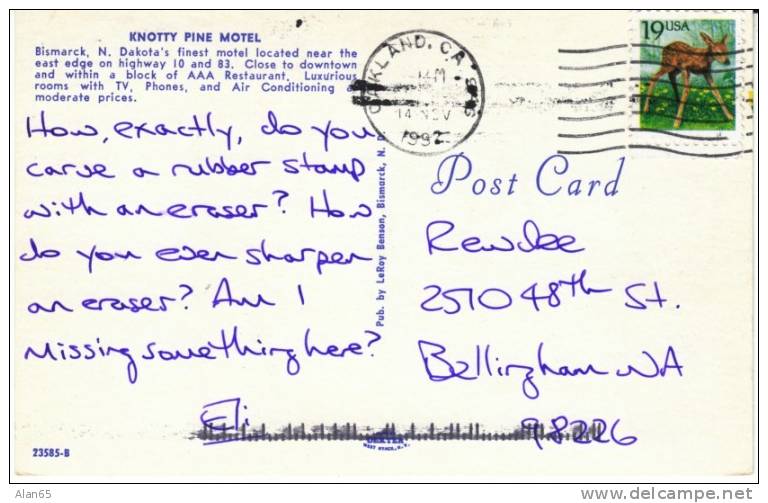 KNOTTY PINE MOTEL
Bismarck, N. Dakota's finest motel located near the
east edge on highway 10 and 83. Close to downtown
and within a block of AAA Restaurant. Luxurious
rooms with TV, Phones, and Air Conditioning
moderate prices.
How, exactly, do you
carve a rubber stamp
with an eraser? How
do you even sharpen
an eraser? Am I
missing something here?
Eli
23585-B
Pub. by LeRoy Benson, Bismarck, N.
DEXTER
WEST NYACK, N.Y.
OAKLAND, CA
14 NOV
1992
19USA
Post Card
2510 48th St.
Bellingham WA
98226
Alan65
www.delcampe.net